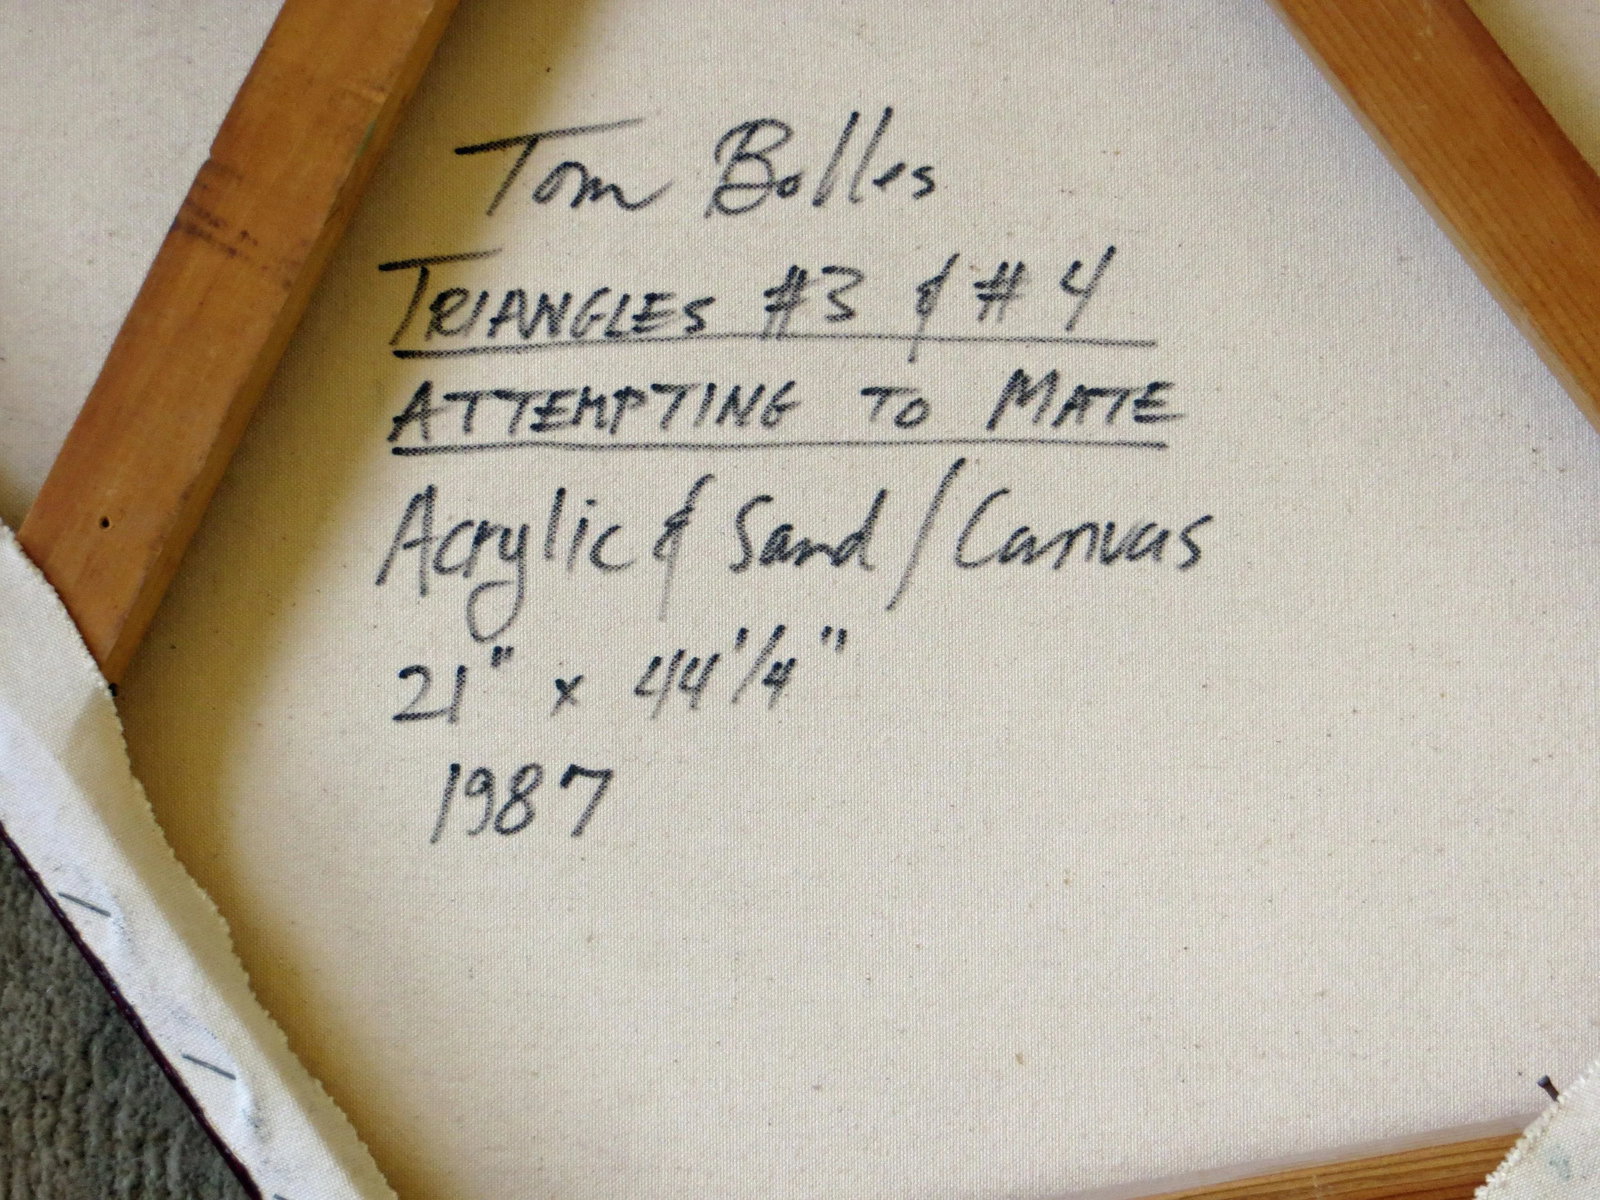 Tom Bolles
TRIANGLES #3 & #4
ATTEMPTING TO MATE
Acrylic & Sand / Canvas
21" x 44 1/4"
1987